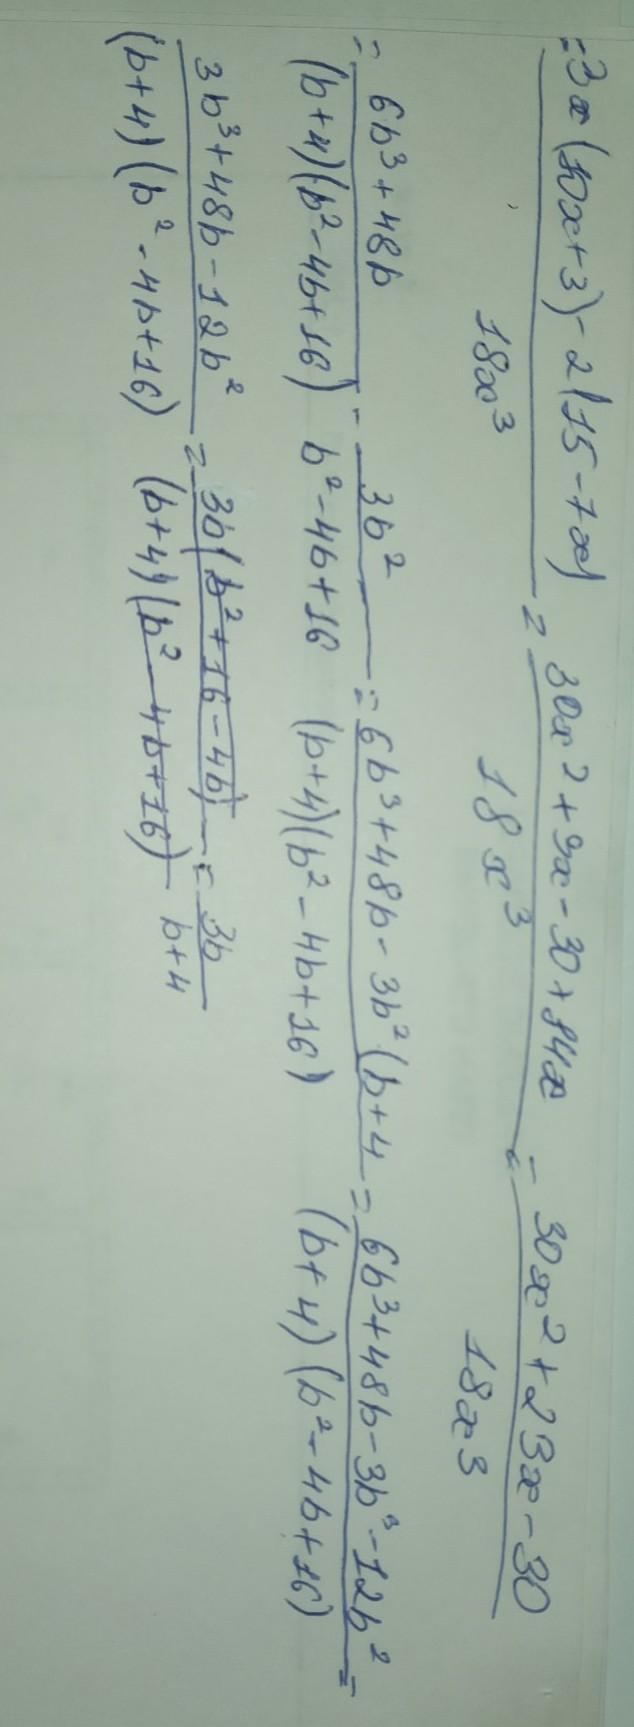 = 3x(10x+3)-2(15-7x) / 18x³ = 30x²+9x-30+14x / 18x³ = 30x²+23x-30 / 18x³
= 6b³+48b / (b+4)(b²-4b+16) - 3b² / b²-4b+16 = 6b³+48b-3b²(b+4 / (b+4)(b²-4b+16) = 6b³+48b-3b³-12b² / (b+4)(b²-4b+16) =
3b³+48b-12b² / (b+4)(b²-4b+16) = 3b(b²+16-4b) / (b+4)(b²-4b+16) = 3b / b+4